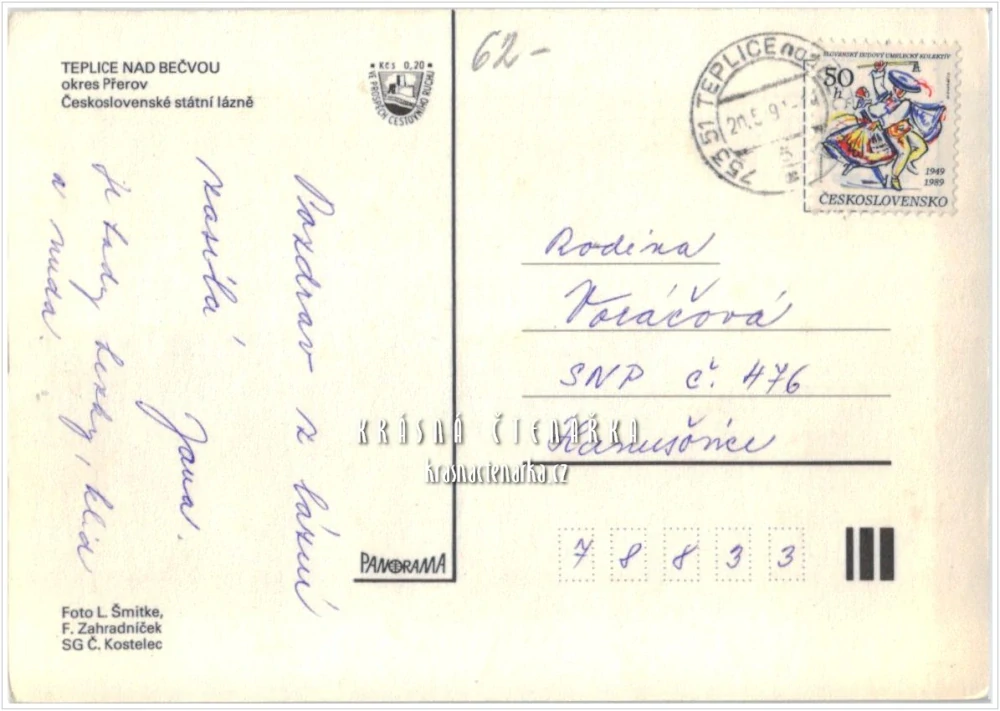 TEPLICE NAD BEČVOU
okres Přerov
Československé státní lázně
Kčs 0,20
VE PROSPĚCH CESTOVNÍHO RUCHU
62-
75351 TEPLICE nad
20.5.9
SLOVENSKÝ ĽUDOVÝ UMELECKÝ KOLEKTÍV
50 h
1949
1989
ČESKOSLOVENSKO
Pozdrav z lázní
zasílá
Jana.
Je tady hezky, klid
a nuda.
Rodina
Voráčová
SNP č. 476
Hanušovice
78833
KRÁSNÁ ČTENÁŘKA
krasnactenarka.cz
PANORAMA
Foto L. Šmitke,
F. Zahradníček
SG Č. Kostelec